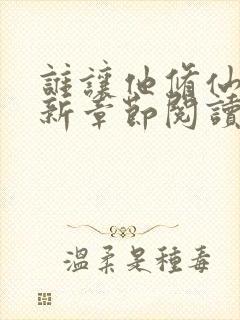 誰讓他脩仙
新章節閱讀
溫柔是種毒